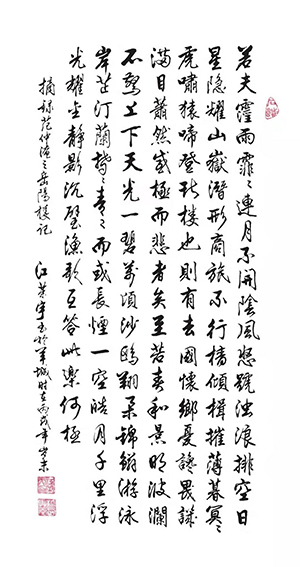 若夫霪雨霏々連月不開陰風怒號濁浪排空日
星隱耀山嶽潛形商旅不行檣傾楫摧薄暮冥々
虎嘯猿啼登斯樓也則有去國懷鄉憂讒畏譏
滿目蕭然感極而悲者矣至若春和景明波瀾
不驚上下天光一碧萬頃沙鷗翔集錦鱗游泳
岸芷汀蘭鬱々青々而或長煙一空皓月千里浮
光耀金靜影沉璧漁歌互答此樂何極
摘錄范仲淹之岳陽樓記
江宇書於羊城時在丙戌年歲末